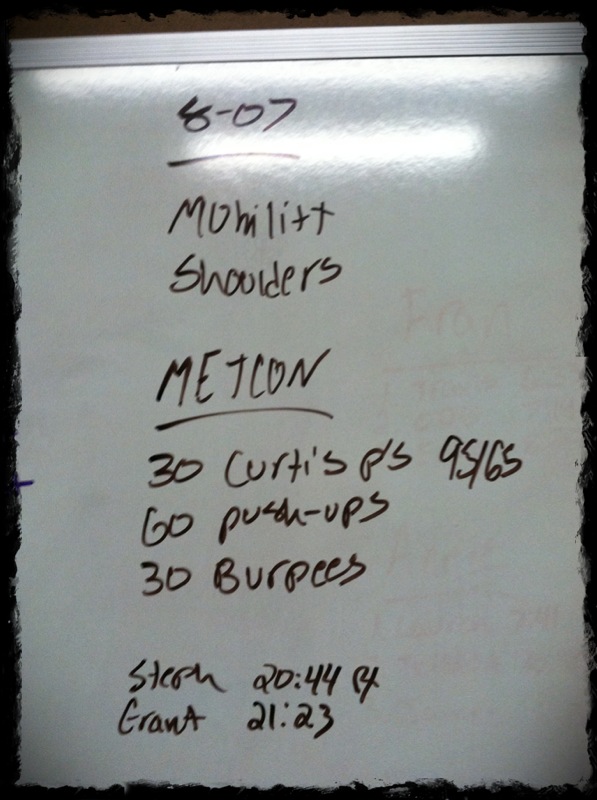 8-07
Mobility
Shoulders
METCON
30 Curtis p's 95/65
60 push-ups
30 Burpees
Steph 20:44 RX
Grant 21:23
Fran